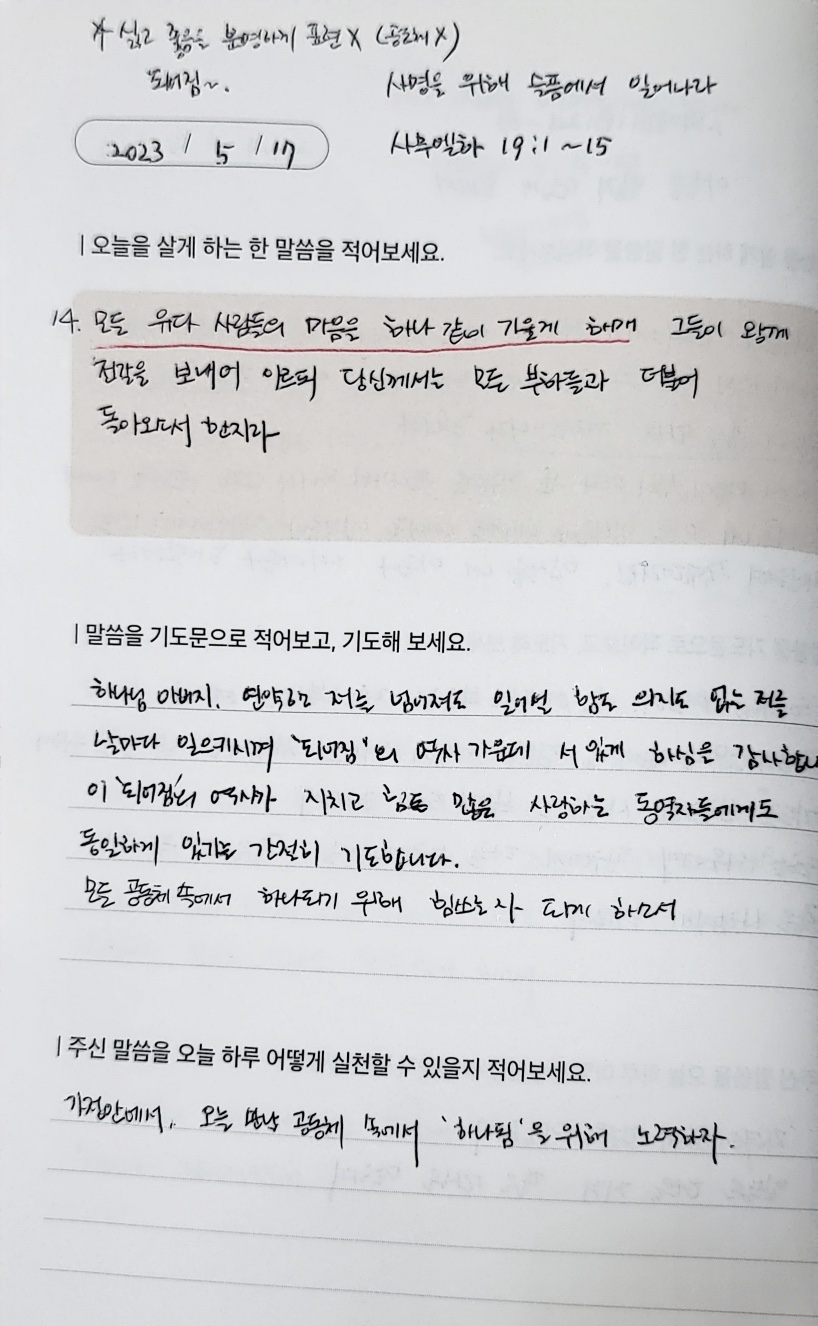 * 싫고 좋음을 분명하게 표현 X (공동체 X)
되어짐~.
사명을 위해 슬픔에서 일어나라
2023 / 5 / 17
사무엘하 19:1~15
| 오늘을 살게 하는 한 말씀을 적어보세요.
14. 모든 유다 사람들의 마음을 하나 같이 기울게 하매 그들이 왕께
전갈을 보내어 이르되 당신께서는 모든 부하들과 더불어
돌아오소서 한지라
| 말씀을 기도문으로 적어보고, 기도해 보세요.
하나님 아버지. 연약한 저를 넘어져도 일어설 힘도 의지도 없는 저를
날마다 일으키시며 '되어짐'의 역사 가운데 서 있게 하심을 감사합니
이 '되어짐'의 역사가 지치고 힘든 사랑하는 동역자들에게도
동일하게 있기를 간절히 기도합니다.
모든 공동체 속에서 하나되기 위해 힘쓰는 자 되게 하소서
| 주신 말씀을 오늘 하루 어떻게 실천할 수 있을지 적어보세요.
가정안에서, 오늘 만난 공동체 속에서 '하나됨'을 위해 노력하자.